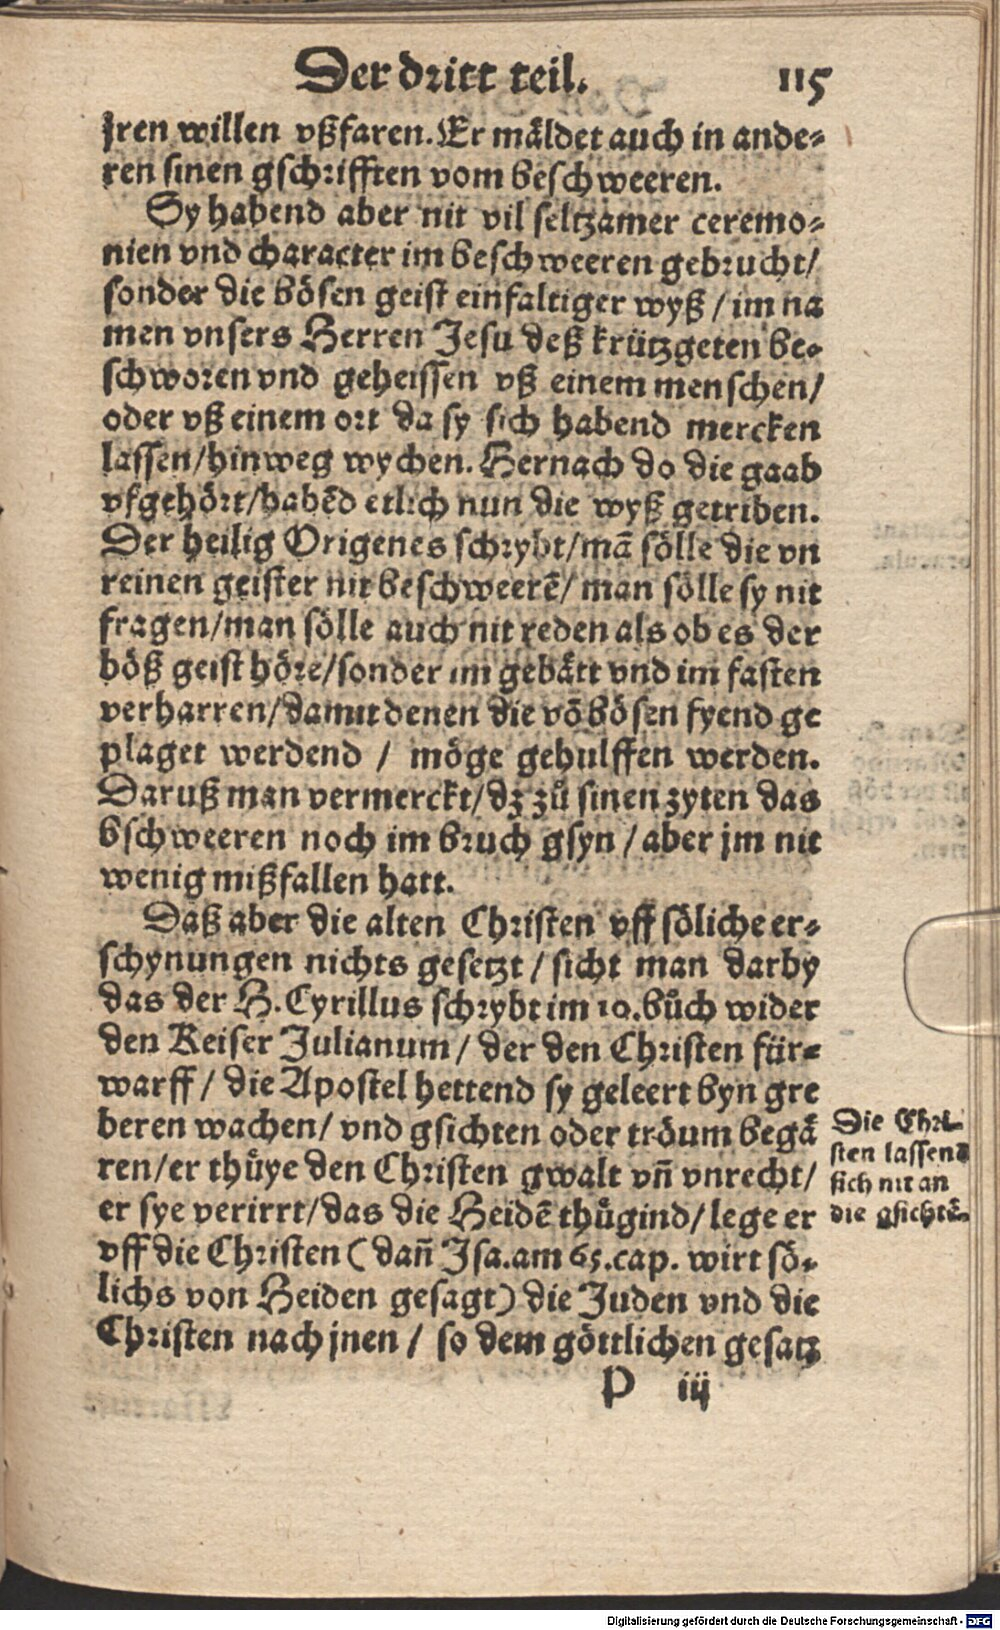 Der dritt teil. 115
jren willen vßfaren. Er mäldet auch in ande-
ren sinen gschrifften vom beschweeren.
Sy habend aber nit vil seltzamer ceremo-
nien vnd character im beschweeren gebrucht/
sonder die bösen geist einfaltiger wyß / im na
men vnsers Herren Jesu deß krützgeten be-
schworen vnd geheissen vß einem menschen/
oder vß einem ort da sy sich habend mercken
lassen/hinweg wychen. Hernach do die gaab
vfgehört/habēd etlich nun die wyß getriben.
Der heilig Origenes schrybt/mā sölle die vn
reinen geister nit beschweerē/ man sölle sy nit
fragen/man sölle auch nit reden als ob es der
böß geist höre/sonder im gebätt vnd im fasten
verharren/damit denen die vō bösen fyend ge
plaget werdend / möge gehulffen werden.
Daruß man vermerckt/dz zů sinen zyten das
bschweeren noch im bruch gsyn / aber jm nit
wenig mißfallen hatt.
Daß aber die alten Christen vff söliche er-
schynungen nichts gesetzt / sicht man darby
das der H. Cyrillus schrybt im 10. bůch wider
den Keiser Julianum / der den Christen für-
warff / die Apostel hettend sy geleert byn gre
beren wachen/ vnd gsichten oder tröum begä
ren/er thüye den Christen gwalt vn̄ vnrecht/
er sye verirrt/das die Heidē thügind/lege er
vff die Christen ( dan̄ Isa. am 65. cap. wirt sö-
lichs von Heiden gesagt) die Juden vnd die
Christen nach jnen / so dem göttlichen gesatz
P iij
Die Chri-
sten lassend
sich nit an
die gsichtē.
Digitalisierung gefördert durch die Deutsche Forschungsgemeinschaft - DFG